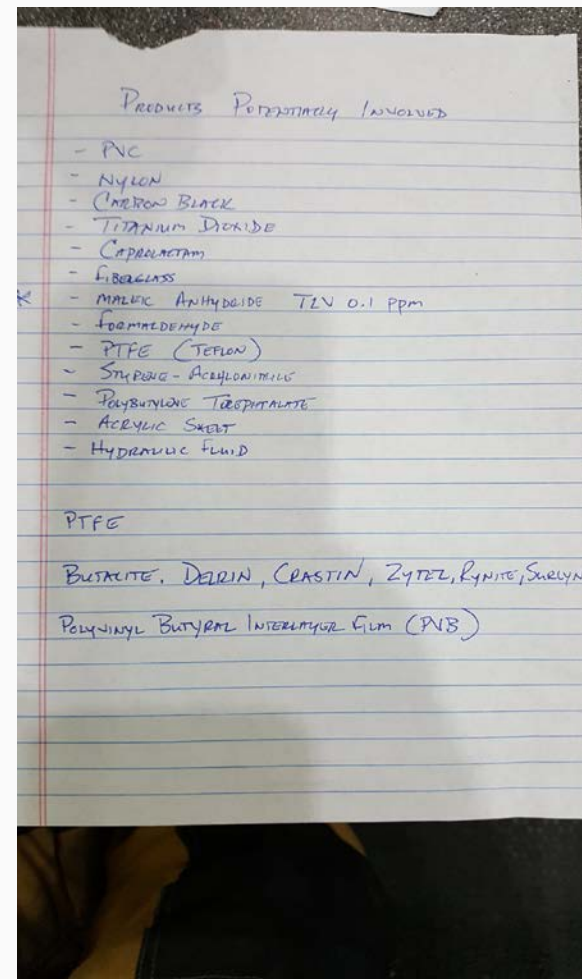 PRODUCTS POTENTIALLY INVOLVED
- PVC
- NYLON
- CARBON BLACK
- TITANIUM DIOXIDE
- CAPROLACTAM
- FIBERGLASS
* - MALEIC ANHYDRIDE TLV 0.1 ppm
- FORMALDEHYDE
- PTFE (TEFLON)
- STYRENE-ACRYLONITRILE
- POLYBUTYLENE TEREPHTALATE
- ACRYLIC SHEET
- HYDRAULIC FLUID
PTFE
BUTACITE, DELRIN, CRASTIN, ZYTEL, RYNITE, SURLYN
POLYVINYL BUTYRAL INTERLAYER FILM (PVB)